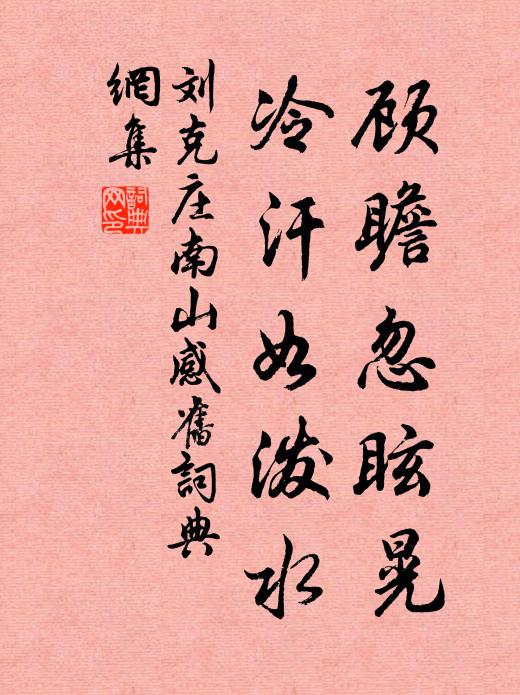 顾瞻忽眩晃
冷汗如泼水
刘克庄南山感舊詞典
網集
詞典
网印